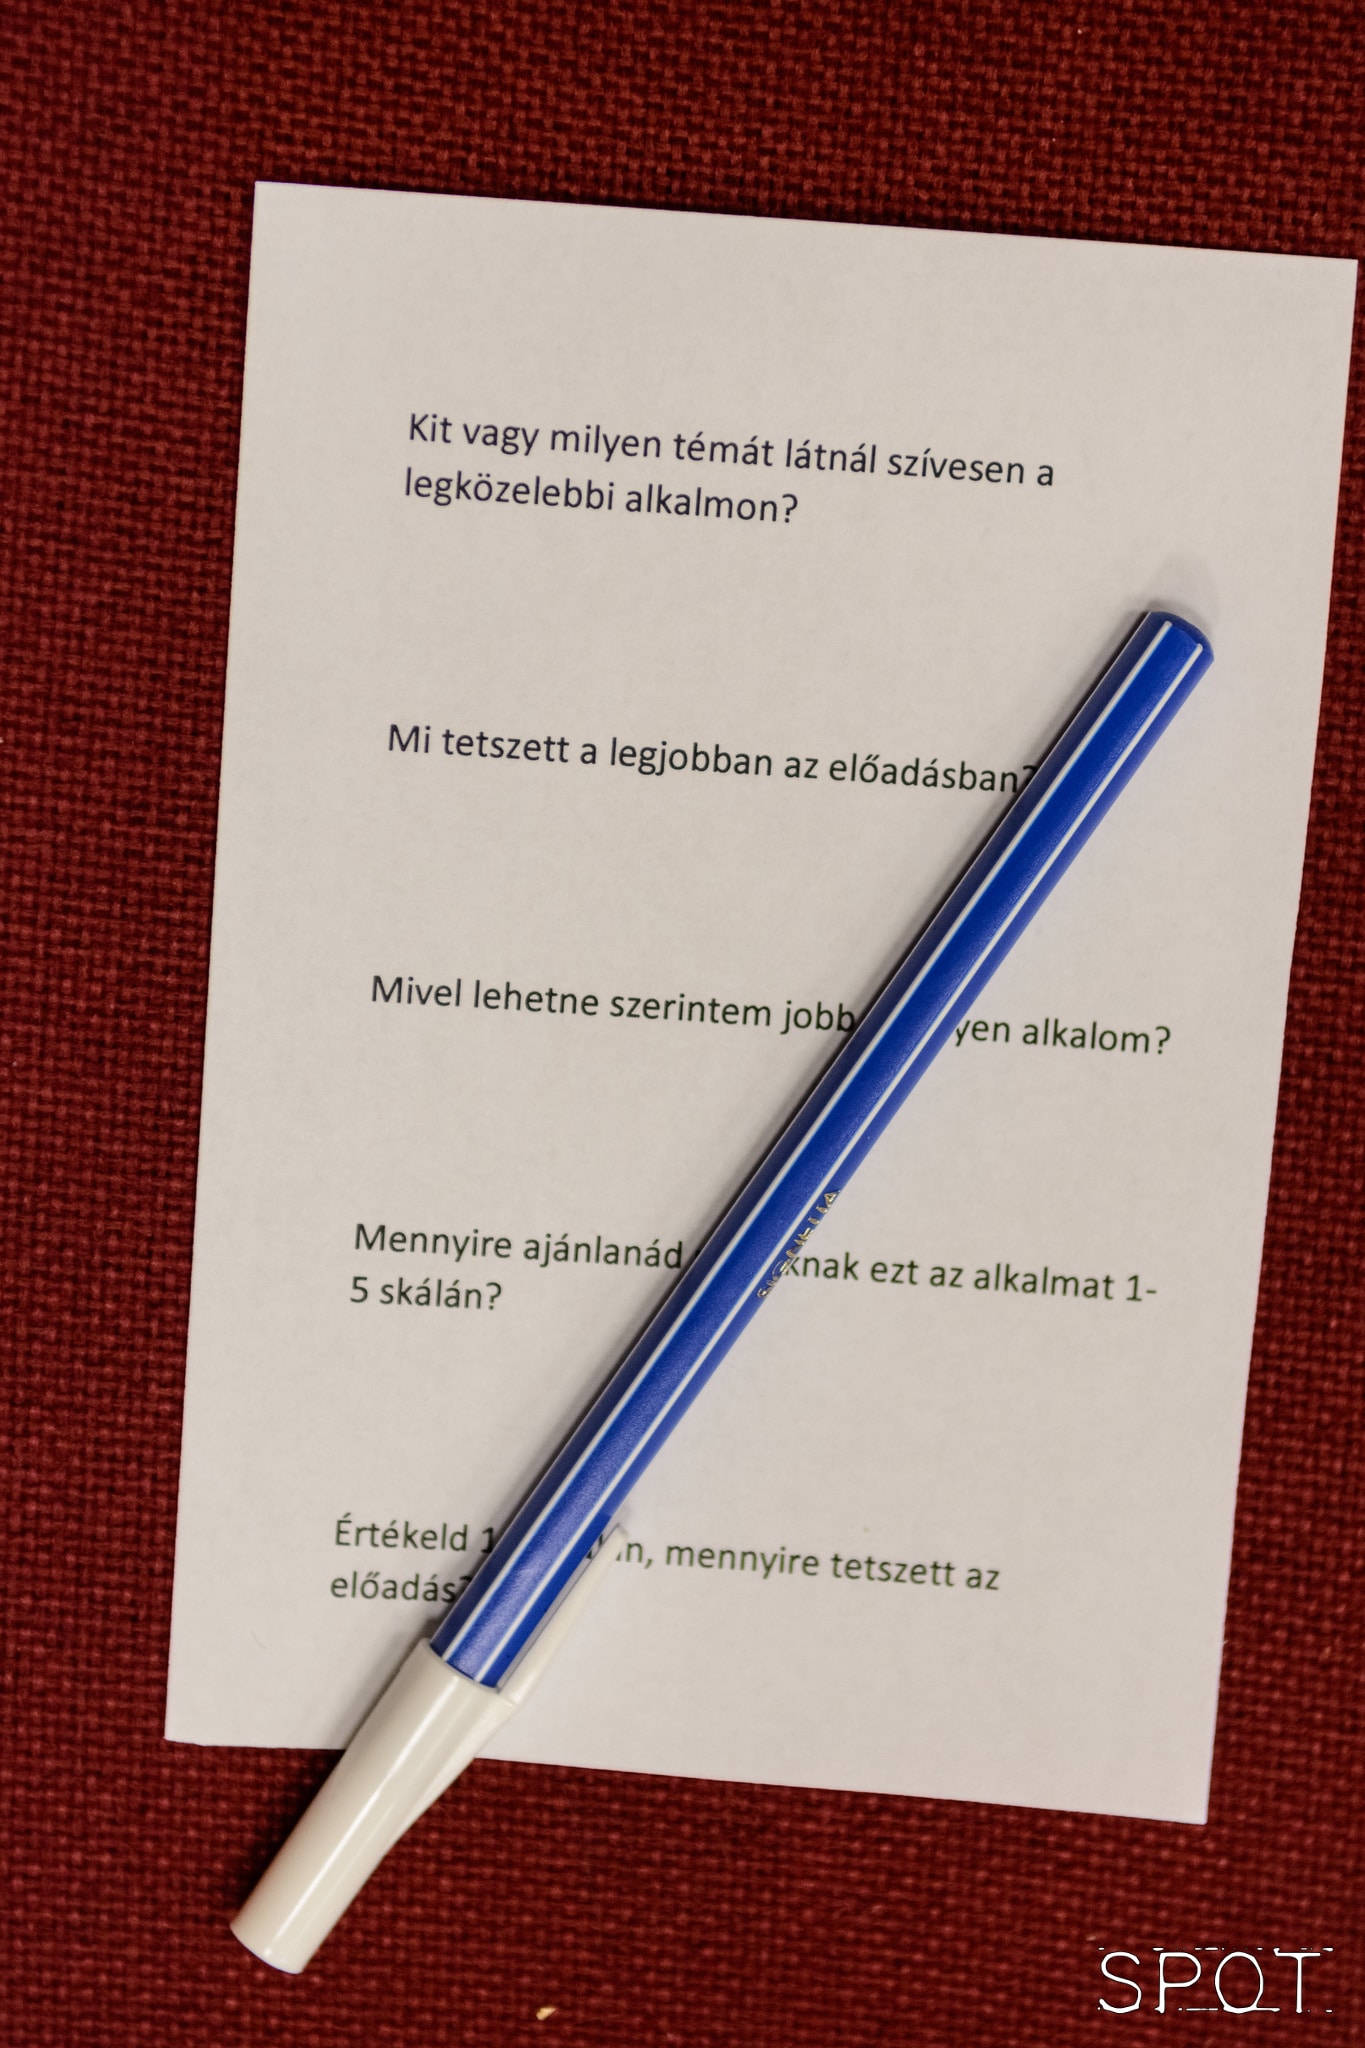 Kit vagy milyen témát látnál szívesen a
legközelebbi alkalmon?
Mi tetszett a legjobban az előadásban?
Mivel lehetne szerintem jobb alkalom?
Mennyire ajánlanád ezt az alkalmat 1-
5 skálán?
Értékeld mennyire tetszett az
előadás?
SPOT